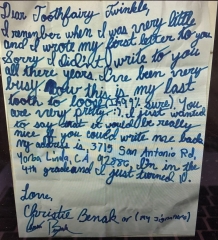 Dear Toothfairy Twinkle,
I remember when I was very little
and I wrote my first letter to you.
Sorry I didn't write to you
all there years. I've been very
busy. Now this is my last
tooth to loose (99% sure). You
are very pretty :). I just wanted
to say that it would be really
nice if you could write me back.
My address is, 3715 San Antonio Rd,
Yorba Linda, CA, 92886. I'm in the
4th grade and I just turned
Love,
Christie Benak or (my signature)